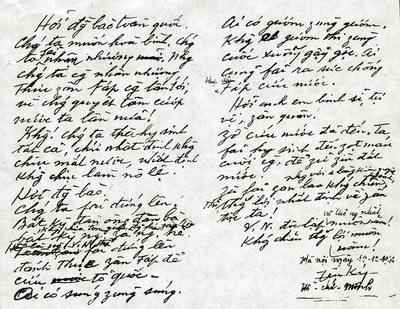 Hỡi đồng bào toàn quốc.
Chúng ta muốn hoà bình, chúng
ta fải nhân nhượng. Nhưng
chúng ta càng nhân nhượng
thực zân Fáp càng lấn tới,
vì chúng quyết tâm cướp
nước ta lần nữa!
Không! chúng ta thà hy sinh
tất cả, chứ nhất định không
chịu mất nước, nhất định
không chịu làm nô lệ.
Hỡi đồng bào.
Chúng ta fải đứng lên.
Bất kỳ đàn ông đàn bà
fải đứng lên
đánh Thực zân Fáp để
cứu tổ quốc -
Ai có súng zùng súng.
Ai có gươm zùng gươm,
Không có gươm thì zùng
cuốc xuổng gậy gộc. Ai
cũng fải ra sức chống
Fáp cứu nước.
Hỡi anh em binh sĩ, tự
vệ, zân quân.
Zờ cứu nước đã đến, ta
fải hy sinh đến zọt máu
cuối cùng, để zữ zìn đất
nước.
Zù fải zan lao kháng chiến,
thắng lợi nhất định về zân
tộc ta!
V.N. độc lập
Kháng chiến thắng lợi muôn
năm!
Hà nội ngày 19-12-1946
Hồ-chí-Minh